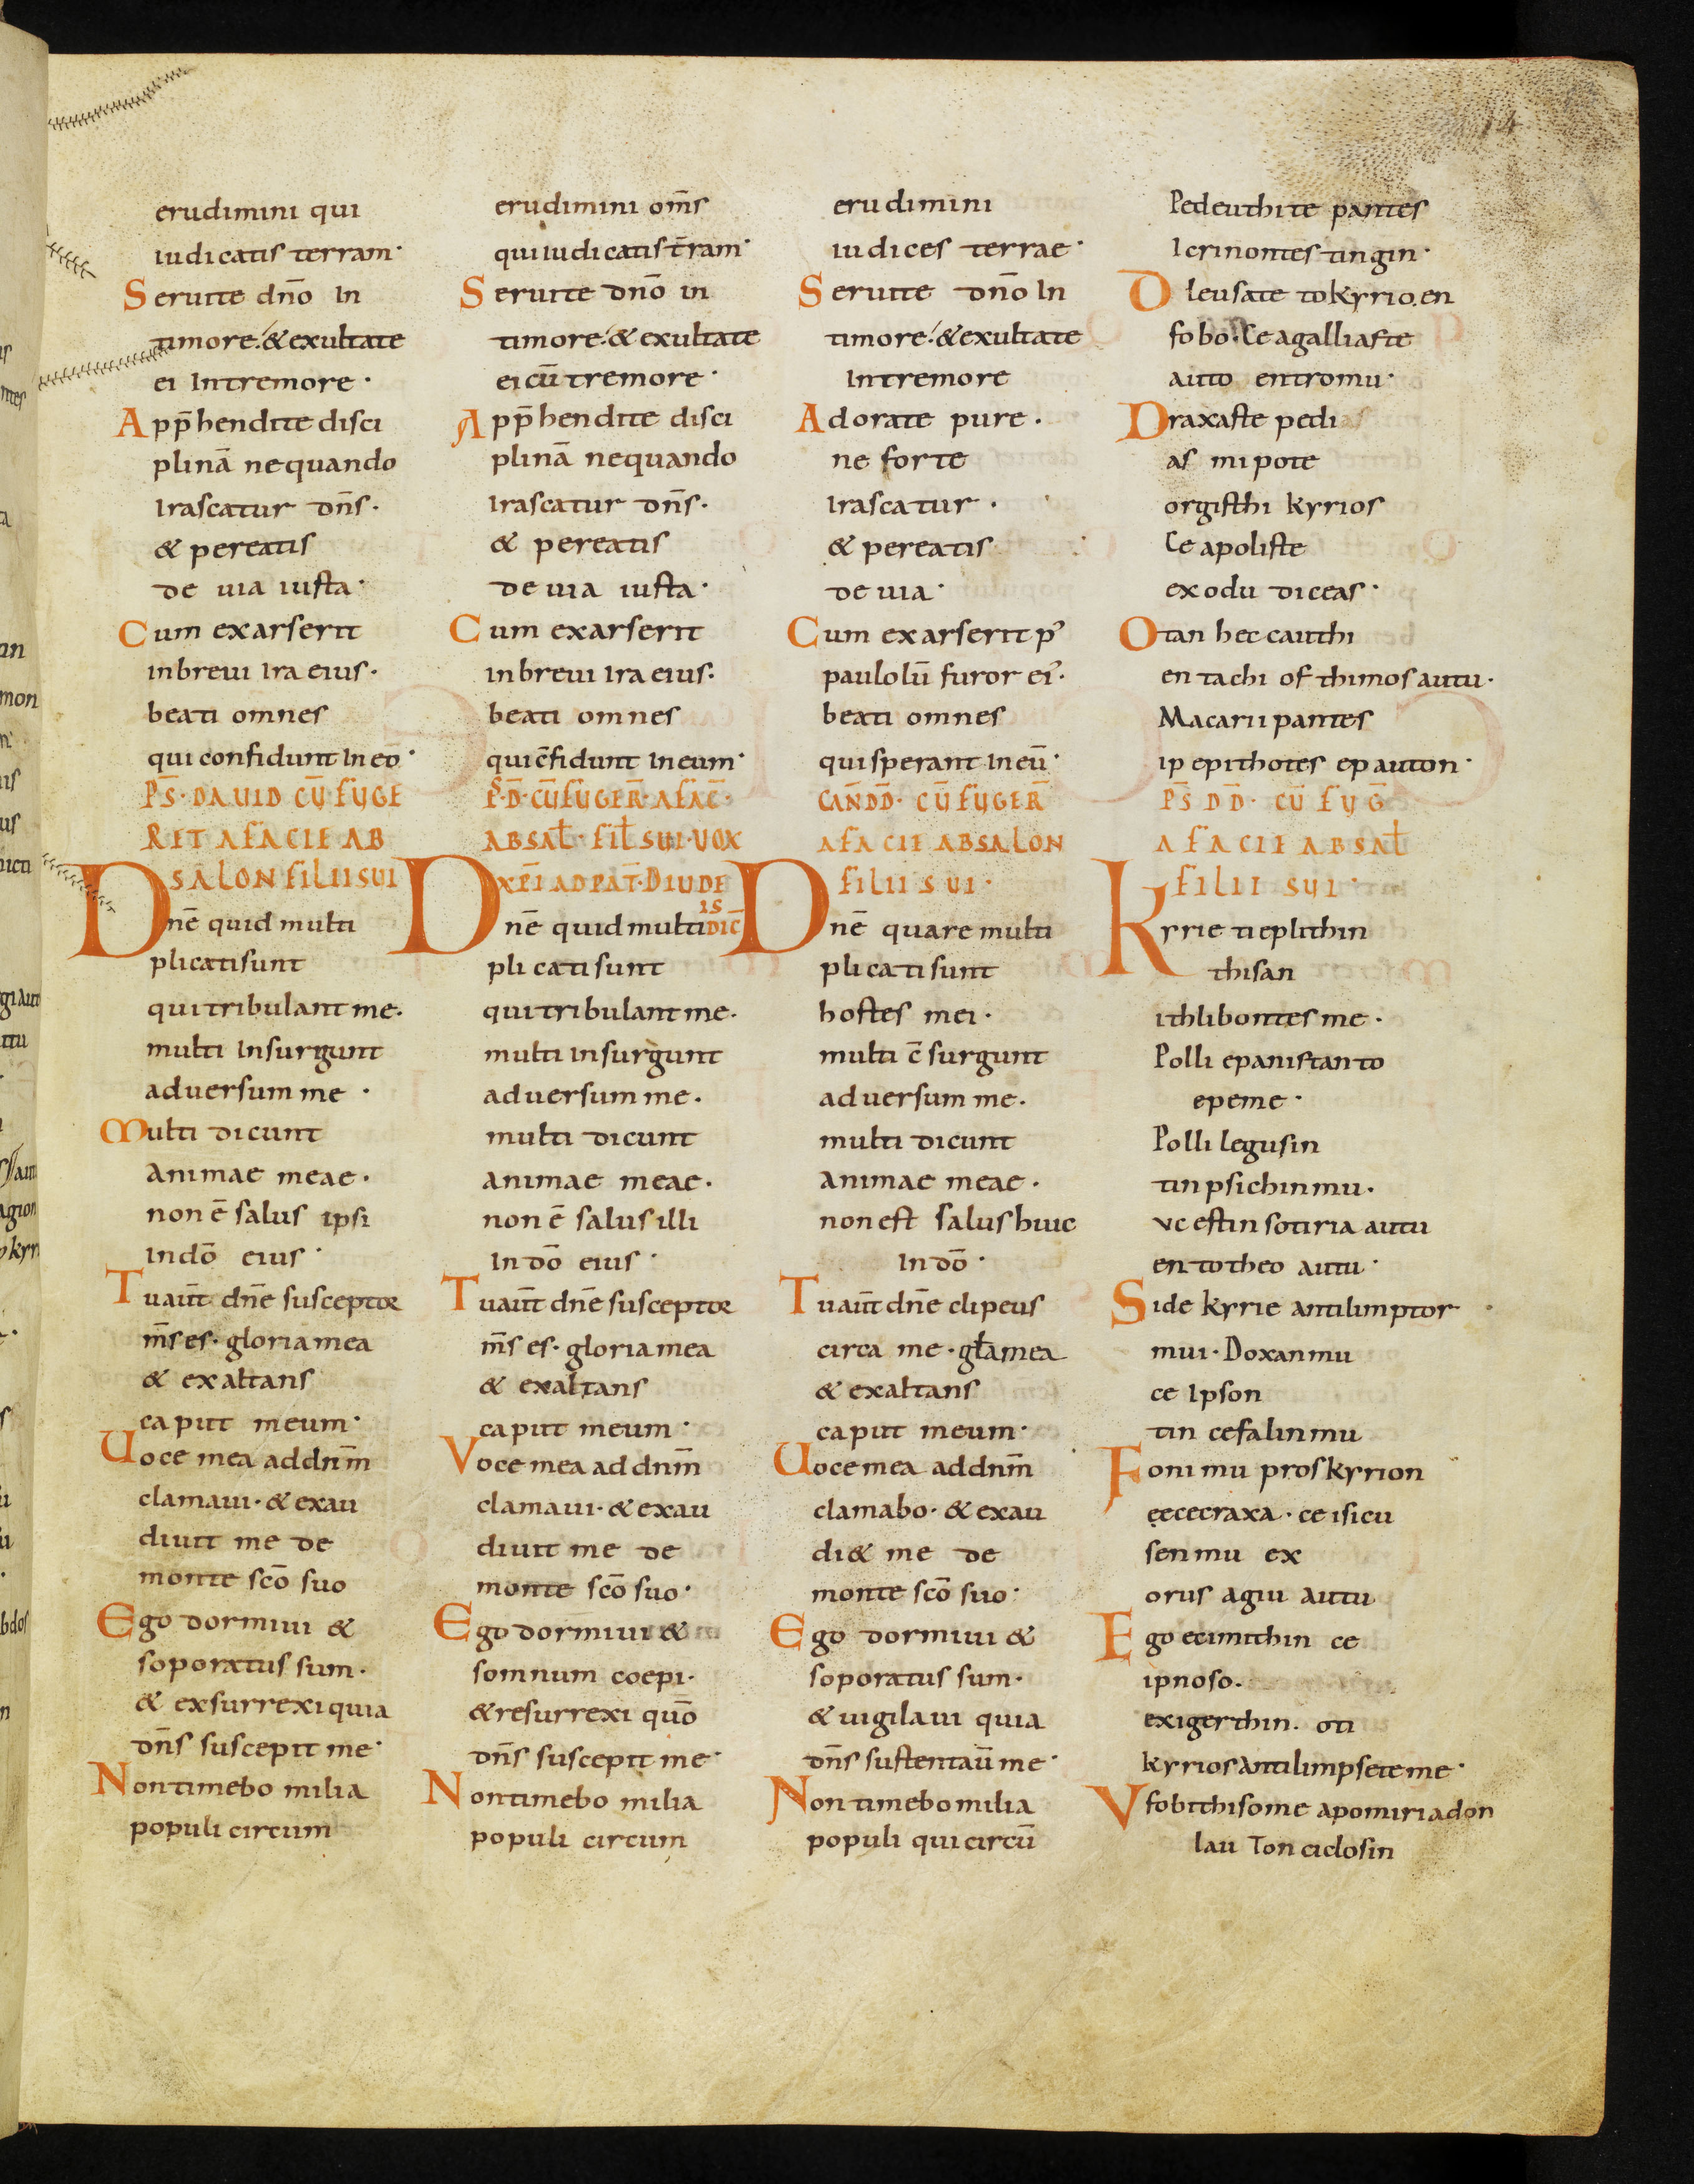 14
erudimini qui
iudicatis terram·
Seruite dn̄o In
timore·&exultate
ei Intremore·
App̄hendite disci
plinā nequando
Irascatur dn̄s·
& pereatis
de uia iusta·
Cum exarserit
inbreui Ira eius·
beati omnes
qui confidunt In eo·
PS̄· DAUID CŪ FUGE
RET A FACIE AB
SALON FILII SUI
Dnē quid multi
plicatisunt
quitribulant me·
multi Insurgunt
aduersum me·
Multi dicunt
animae meae·
non ē salus ipsi
Indō eius·
Tuaūt dn̄e susceptor
m̄s es· gloriamea
& exaltans
caput meum·
Uoce mea addnm̄
clamaui·&exau
diuit me de
monte scō suo
Ego dormiui &
soporatus sum·
& exsurrexi quia
dn̄s suscepit me·
Nontimebo milia
populi circum
erudimini om̄s
quiiudicatis t̄ram·
Seruite dn̄o in
timore·&exultate
ei cū tremore·
App̄hendite disci
plinā nequando
Irascatur dn̄s·
& pereatis
de uia iusta·
Cum exarserit
inbreui Ira eius·
beati omnes
quic̄fidunt In eum·
PS· D̄· CŪ FUGER̄· A FAC̄·
ABSAL̄· FIL̄ SUI· UOX
XP̄I AD PAT̄· D IUDE
IS
Dnē quid multi DIC̄
plicatisunt
quitribulantme·
multi Insurgunt
aduersum me·
multi dicunt
animae meae·
non ē salus illi
In dō eius·
Tuaūt dn̄e susceptor
m̄s es· gloriamea
& exaltans
caput meum·
Voce mea ad dnm̄
clamaui·&exau
diuit me de
monte scō suo·
Ego dormiui &
somnum coepi·
&resurrexi quō
dn̄s suscepit me·
Nontimebo milia
populi circum
erudimini
iudices terrae·
Seruite dn̄o In
timore·&exultate
Intremore
Adorate pure·
ne forte
Irascatur·
& pereatis
de uia·
Cum exarserit p᾿
paulolū furor ei᾿·
beati omnes
quisperant In eū·
CAN̄ DD̄· CŪ FUGER̄
A FACIE ABSALON
FILII SUI·
Dnē quare multi
plicatisunt
hostes mei·
multi c̄surgunt
aduersum me·
multi dicunt
animae meae·
non est salus huic
In dō·
Tuaūt dn̄e clipeus
circa me·gl̄amea
& exaltans
caput meum·
Uoce mea addnm̄
clamabo·&exau
di& me de
monte scō suo·
Ego dormiui &
soporatus sum·
& uigilaui quia
dn̄s sustentaū me·
Non timebo milia
populi qui circū
Pedeuthite pantes
Icrinontes tingin·
Duleusate tokyrio en
fobo·Ce agalliaste
auto entromu·
Draxaste pedi
as mipote
orgisthi kyrios
Ce apoliste
exodu diceas·
Otan hec cauthi
en tachi of thimos autu·
Macarii pantes
ip epithotes ep auton·
PS̄ DD̄· CŪ FUḠ
A FACIE ABSAL̄
FILII SUI·
Kyrie ti eplithin
thisan
ithlibontes me·
Polli epanistanto
epeme·
Polli legusin
tin psichinmu·
vc estin sotiria autu
en totheo autu·
Side kyrie antilimptor
mui· Doxanmu
ce Ipson
tin cefalinmu
Foni mu pros kyrion
ececraxa·ce isicu
senmu ex
orus agiu autu
Ego ecimithin ce
ipnoso·
exigerthin· oti
kyrios antilimpseteme·
V fobithisome apomiriadon
lau Ton ciclosin